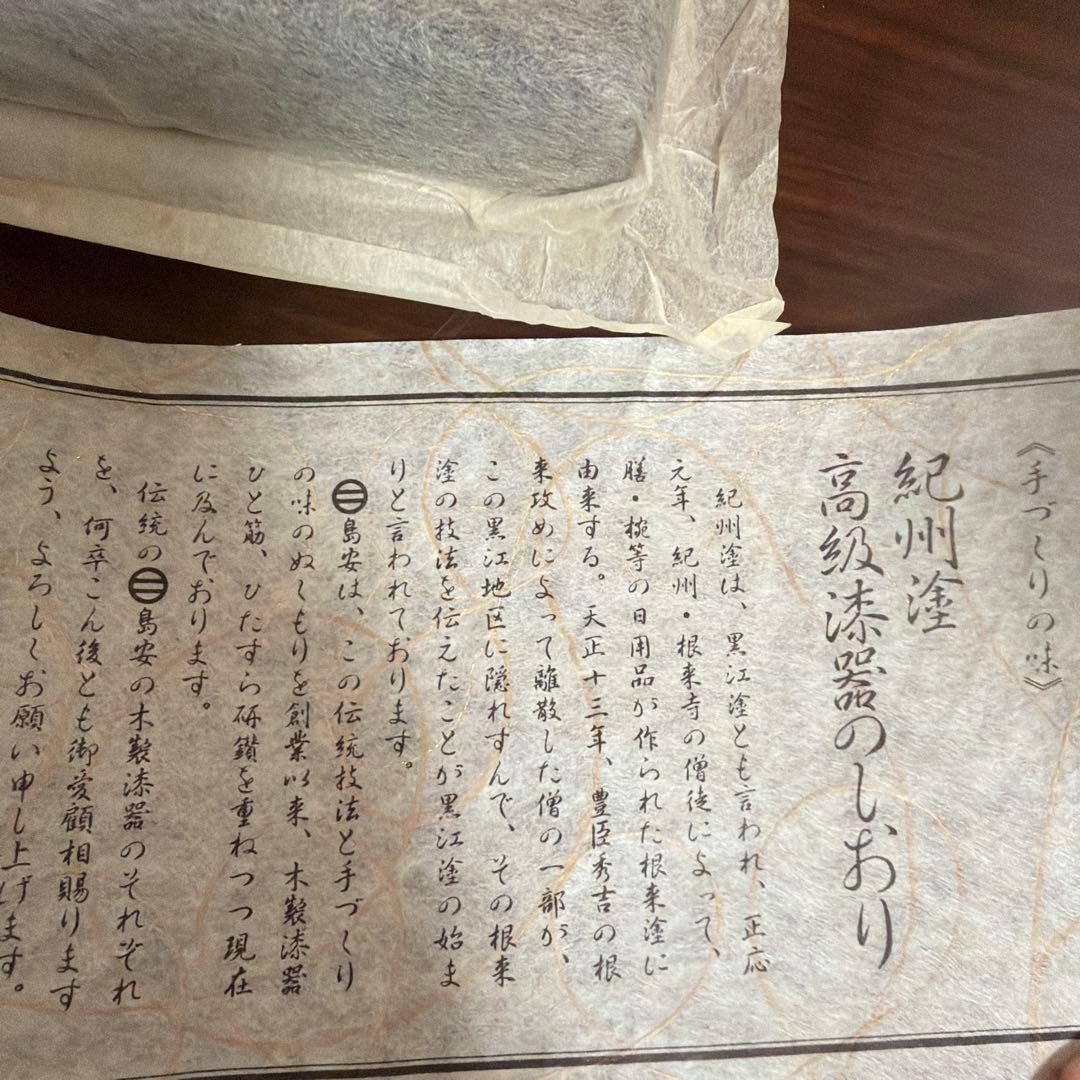 《手づくりの味》
紀州塗
高級漆器のしおり
紀州塗は、黒江塗とも言われ、正応
元年、紀州・根来寺の僧徒によって、
膳・椀等の日用品が作られた根来塗に
由来する。天正十三年、豊臣秀吉の根
来攻めによって離散した僧の一部が、
この黒江地区に隠れすんで、その根来
塗の技法を伝えたことが黒江塗の始ま
りと言われております。
㊁島安は、この伝統技法と手づくり
の味のぬくもりを創業以来、木製漆器
ひと筋、ひたすら研鑽を重ねつつ現在
に及んでおります。
伝統の㊁島安の木製漆器のそれぞれ
を、何卒こん後とも御愛顧相賜ります
よう、よろしくお願い申し上げます。